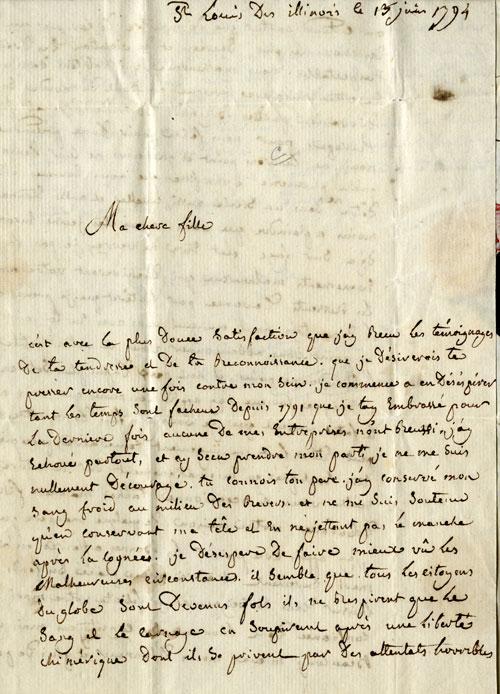 St Louis Des illinois le 13 juin 1794
Ma chere fille
c'est avec la plus Douce Satisfaction que j'ay Recu les témoignages
De ta tendresse et De ta Reconnoissance. que je Désirerois te
presser encore une fois contre mon Sein. je commence a en Désespérer
tant les temps Sont facheux Depuis 1791 que je tay Embrassé pour
La Derniere fois aucune De mes Entreprises n'ont Reussin, j'ay
Echoué partout, et ay Sceu prendre mon parti, je ne me Suis
nullement Decouragé. tu connois ton pere. j'ay conservé mon
Sang froid au milieu Des Revers. et ne me Suis Soutenu
qu'en conservant ma tête et En ne jettant pas le manche
après la Cognée. je Desespere De faire mieux vûe les
Malheureuses circonstances. il Semble que tous les citoyens
Du globe Sont Devenus fols ils ne Respirent que le
Sang et le Carnage en Soupirant après une liberté
chimérique Dont ils Se privent par Des attentats horribles